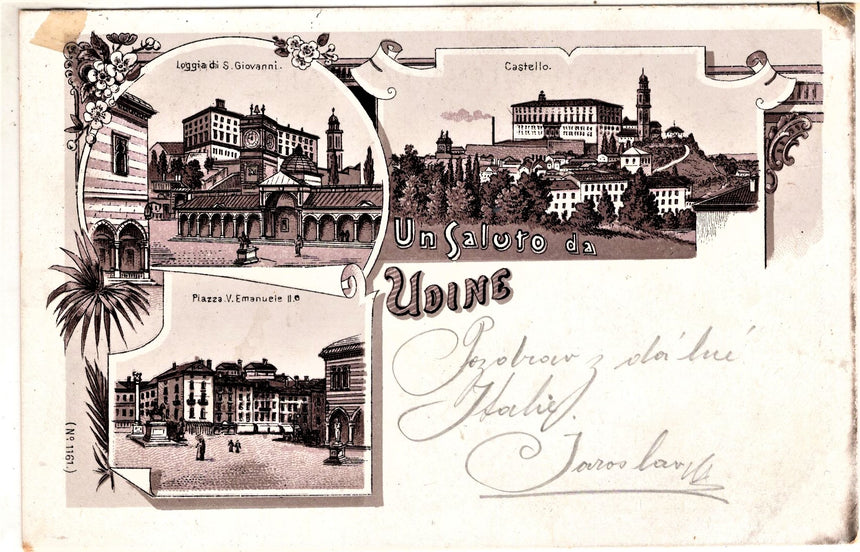 Loggia di S. Giovanni.
Castello.
Un Saluto da
UDINE
Piazza V. Emanuele II.º
(Nº 1161.)
Pozdrav z dálné
Italie.
Jaroslav